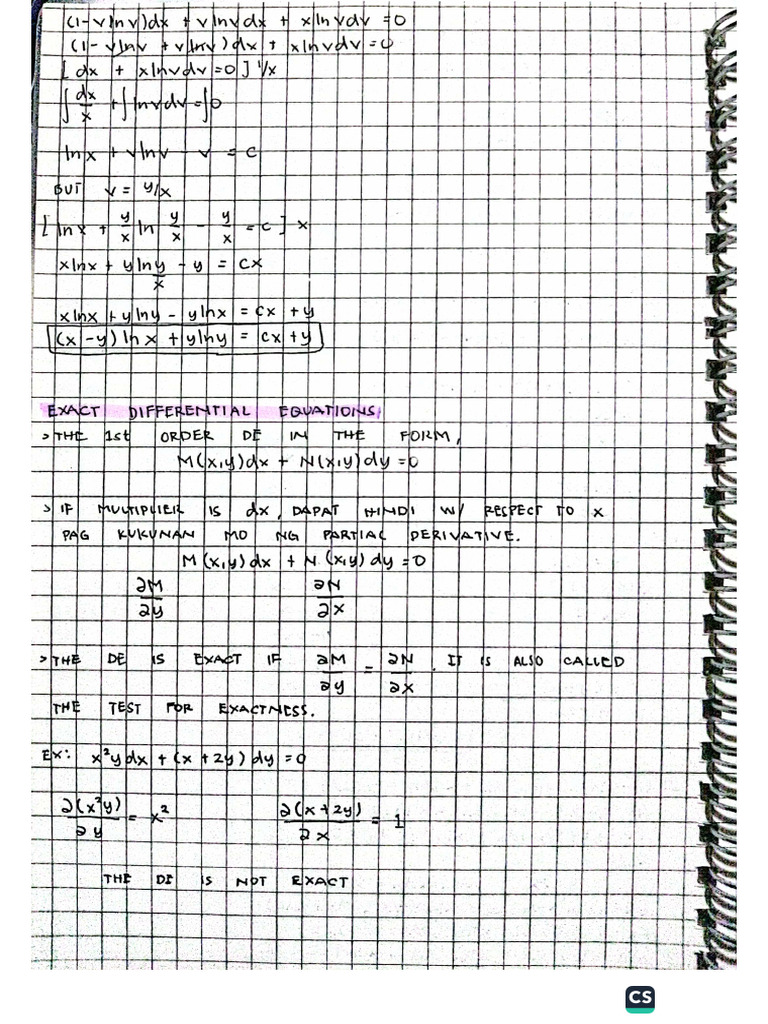 (1-vlnv)dx + vlnvdx + xlnvdv = 0
(1-vlnv + vlnv)dx + xlnvdv = 0
[dx + xlnvdv = 0] 1/x
∫ dx/x + ∫ lnvdv = ∫ 0
lnx + vlnv - v = c
BUT v = y/x
[lnx + y/x ln y/x - y/x = c] x
xlnx + yln y/x - y = cx
xlnx + ylny - ylnx = cx + y
(x-y) lnx + ylny = cx + y
EXACT DIFFERENTIAL EQUATIONS
> THE 1st ORDER DE IN THE FORM,
M(x,y)dx + N(x,y)dy = 0
> IF MULTIPLIER IS dx, DAPAT HINDI W/ RESPECT TO x
PAG KUKUNAN MO NG PARTIAL DERIVATIVE.
M(x,y)dx + N(x,y)dy = 0
∂M/∂y ∂N/∂x
> THE DE IS EXACT IF ∂M/∂y = ∂N/∂x. IT IS ALSO CALLED
THE TEST FOR EXACTNESS.
EX: x²ydx + (x + 2y)dy = 0
∂(x²y)/∂y = x² ∂(x+2y)/∂x = 1
THE DE IS NOT EXACT
CS